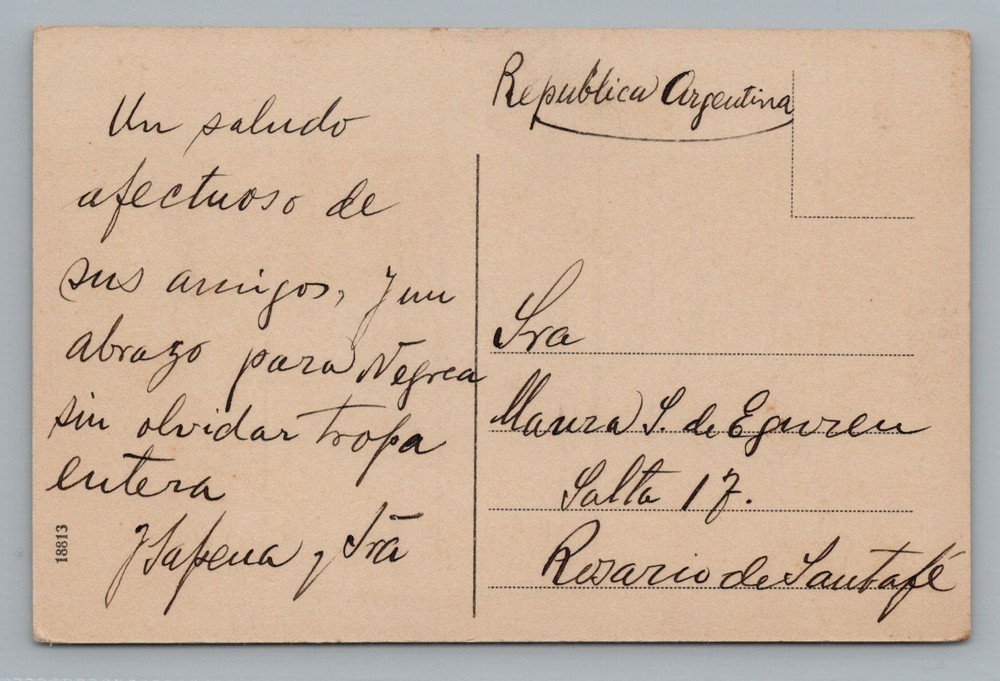 Un saludo
afectuoso de
sus amigos, y un
abrazo para Negrea
sin olvidar tropa
entera
JSapena y Sra
18813
Republica Argentina
Sra
Maura S. de Eguren
Salta 17.
Rosario de Santafé